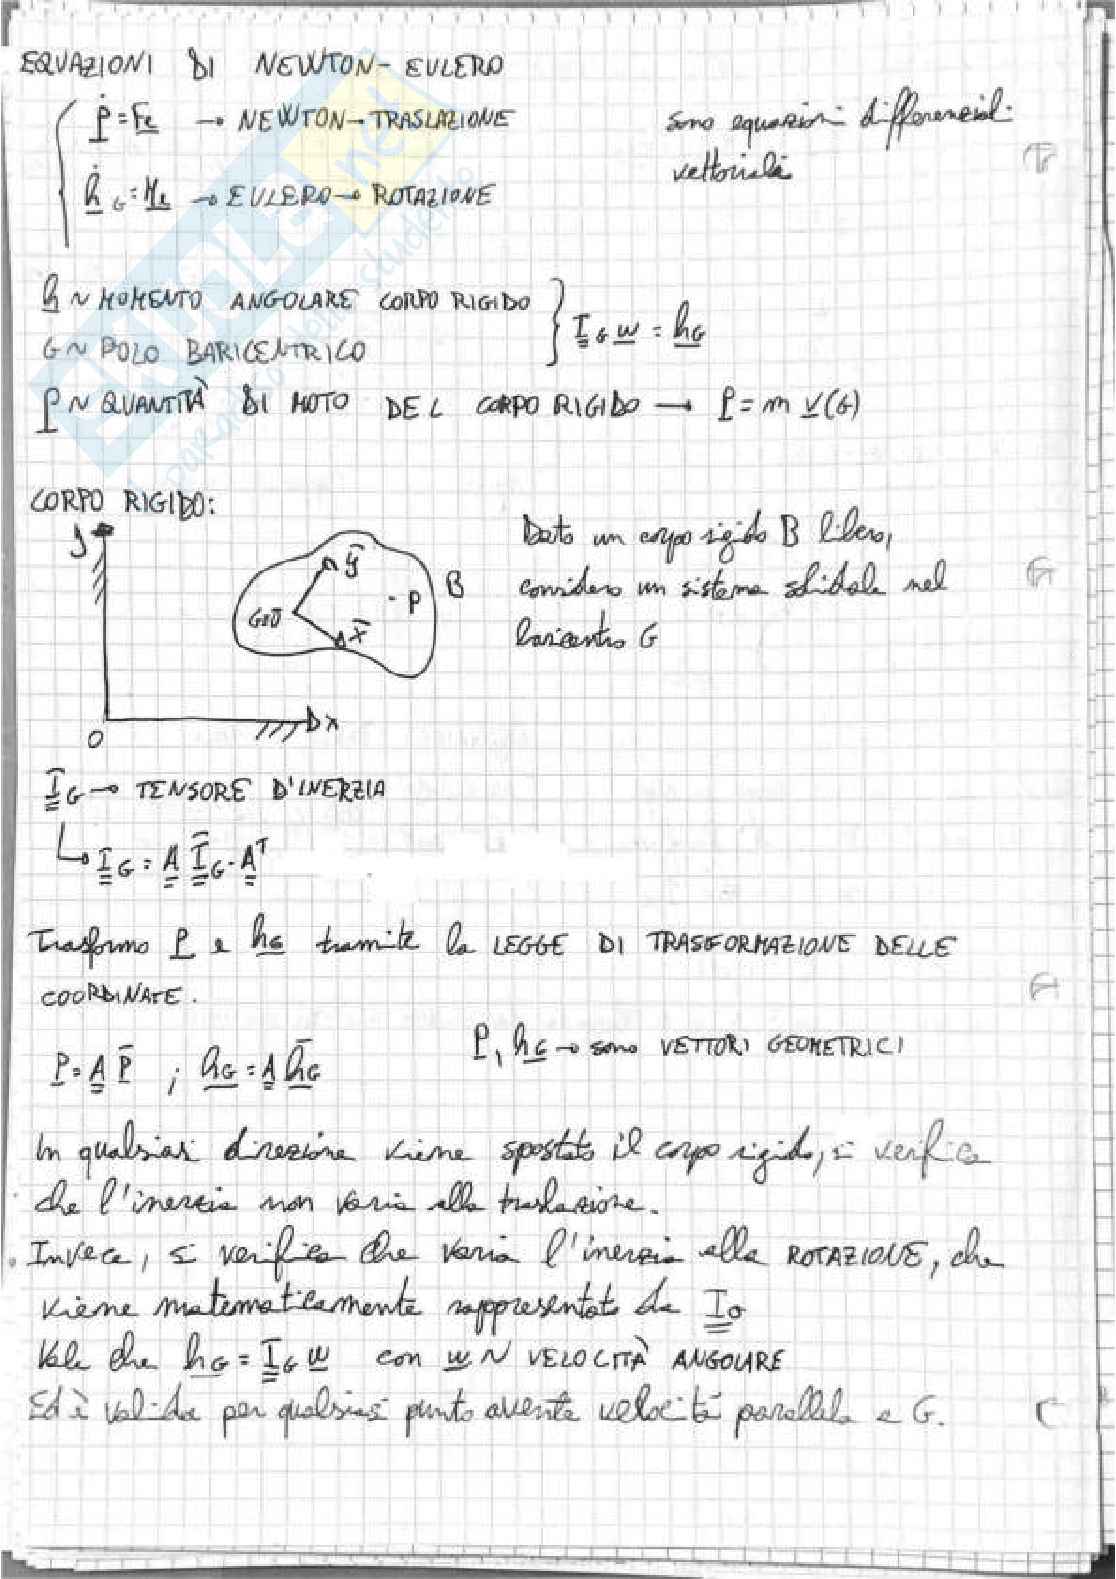 EQUAZIONI DI NEWTON-EULERO
Ṗ = Fe → NEWTON → TRASLAZIONE
sono equazioni differenziali
vettoriali
ḣ_G = Me → EULERO → ROTAZIONE
h ~ MOMENTO ANGOLARE CORPO RIGIDO
G ~ POLO BARICENTRICO
I_G w = h_G
P ~ QUANTITÀ DI MOTO DEL CORPO RIGIDO → P = m v(G)
CORPO RIGIDO:
y
ȳ
B
P
G≡Ō
x̄
O
x
Dato un corpo rigido B libero,
considero un sistema solidale nel
baricentro G
Ī_G → TENSORE D'INERZIA
I_G = A Ī_G · A^T
Trasformo P e h_G tramite la LEGGE DI TRASFORMAZIONE DELLE
COORDINATE.
P = A P̄ ; h_G = A h̄_G
P, h_G → sono VETTORI GEOMETRICI
In qualsiasi direzione viene spostato il corpo rigido, si verifica
che l'inerzia non varia alla traslazione.
Invece, si verifica che varia l'inerzia alla ROTAZIONE, che
viene matematicamente rappresentato da I_O
Vale che h_G = I_G w con w ~ VELOCITÀ ANGOLARE
Ed è valida per qualsiasi punto avente velocità parallela a G.